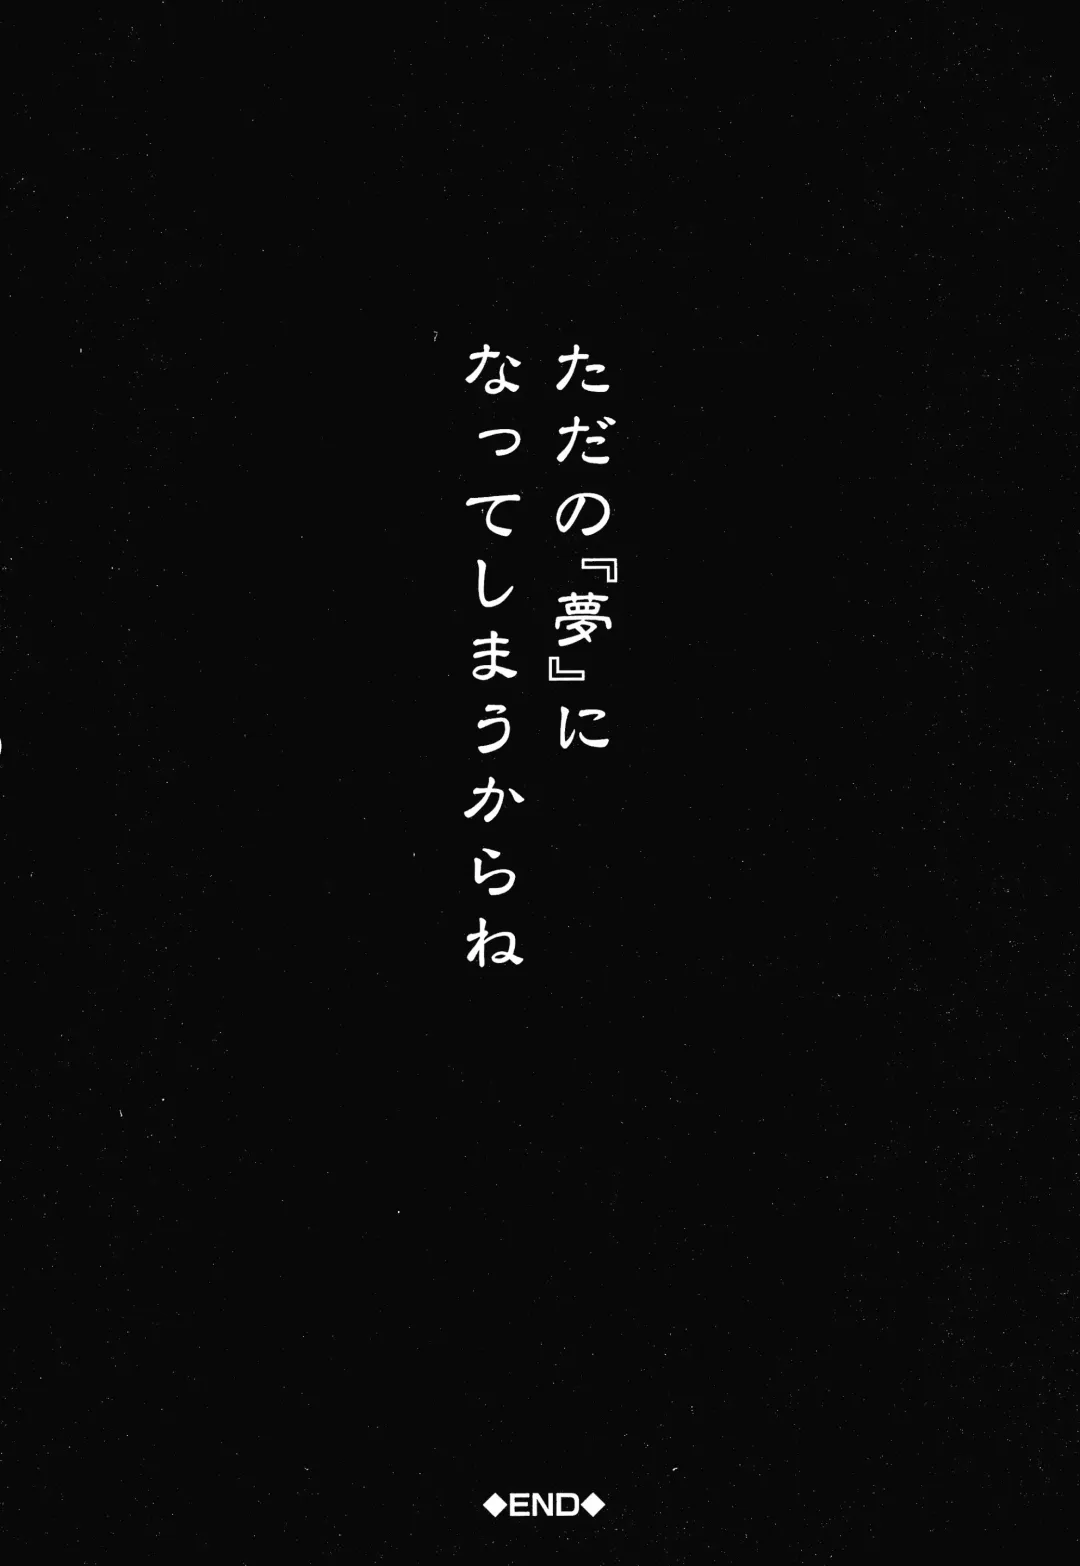 ただの『夢』に
なってしまうからね
◆END◆